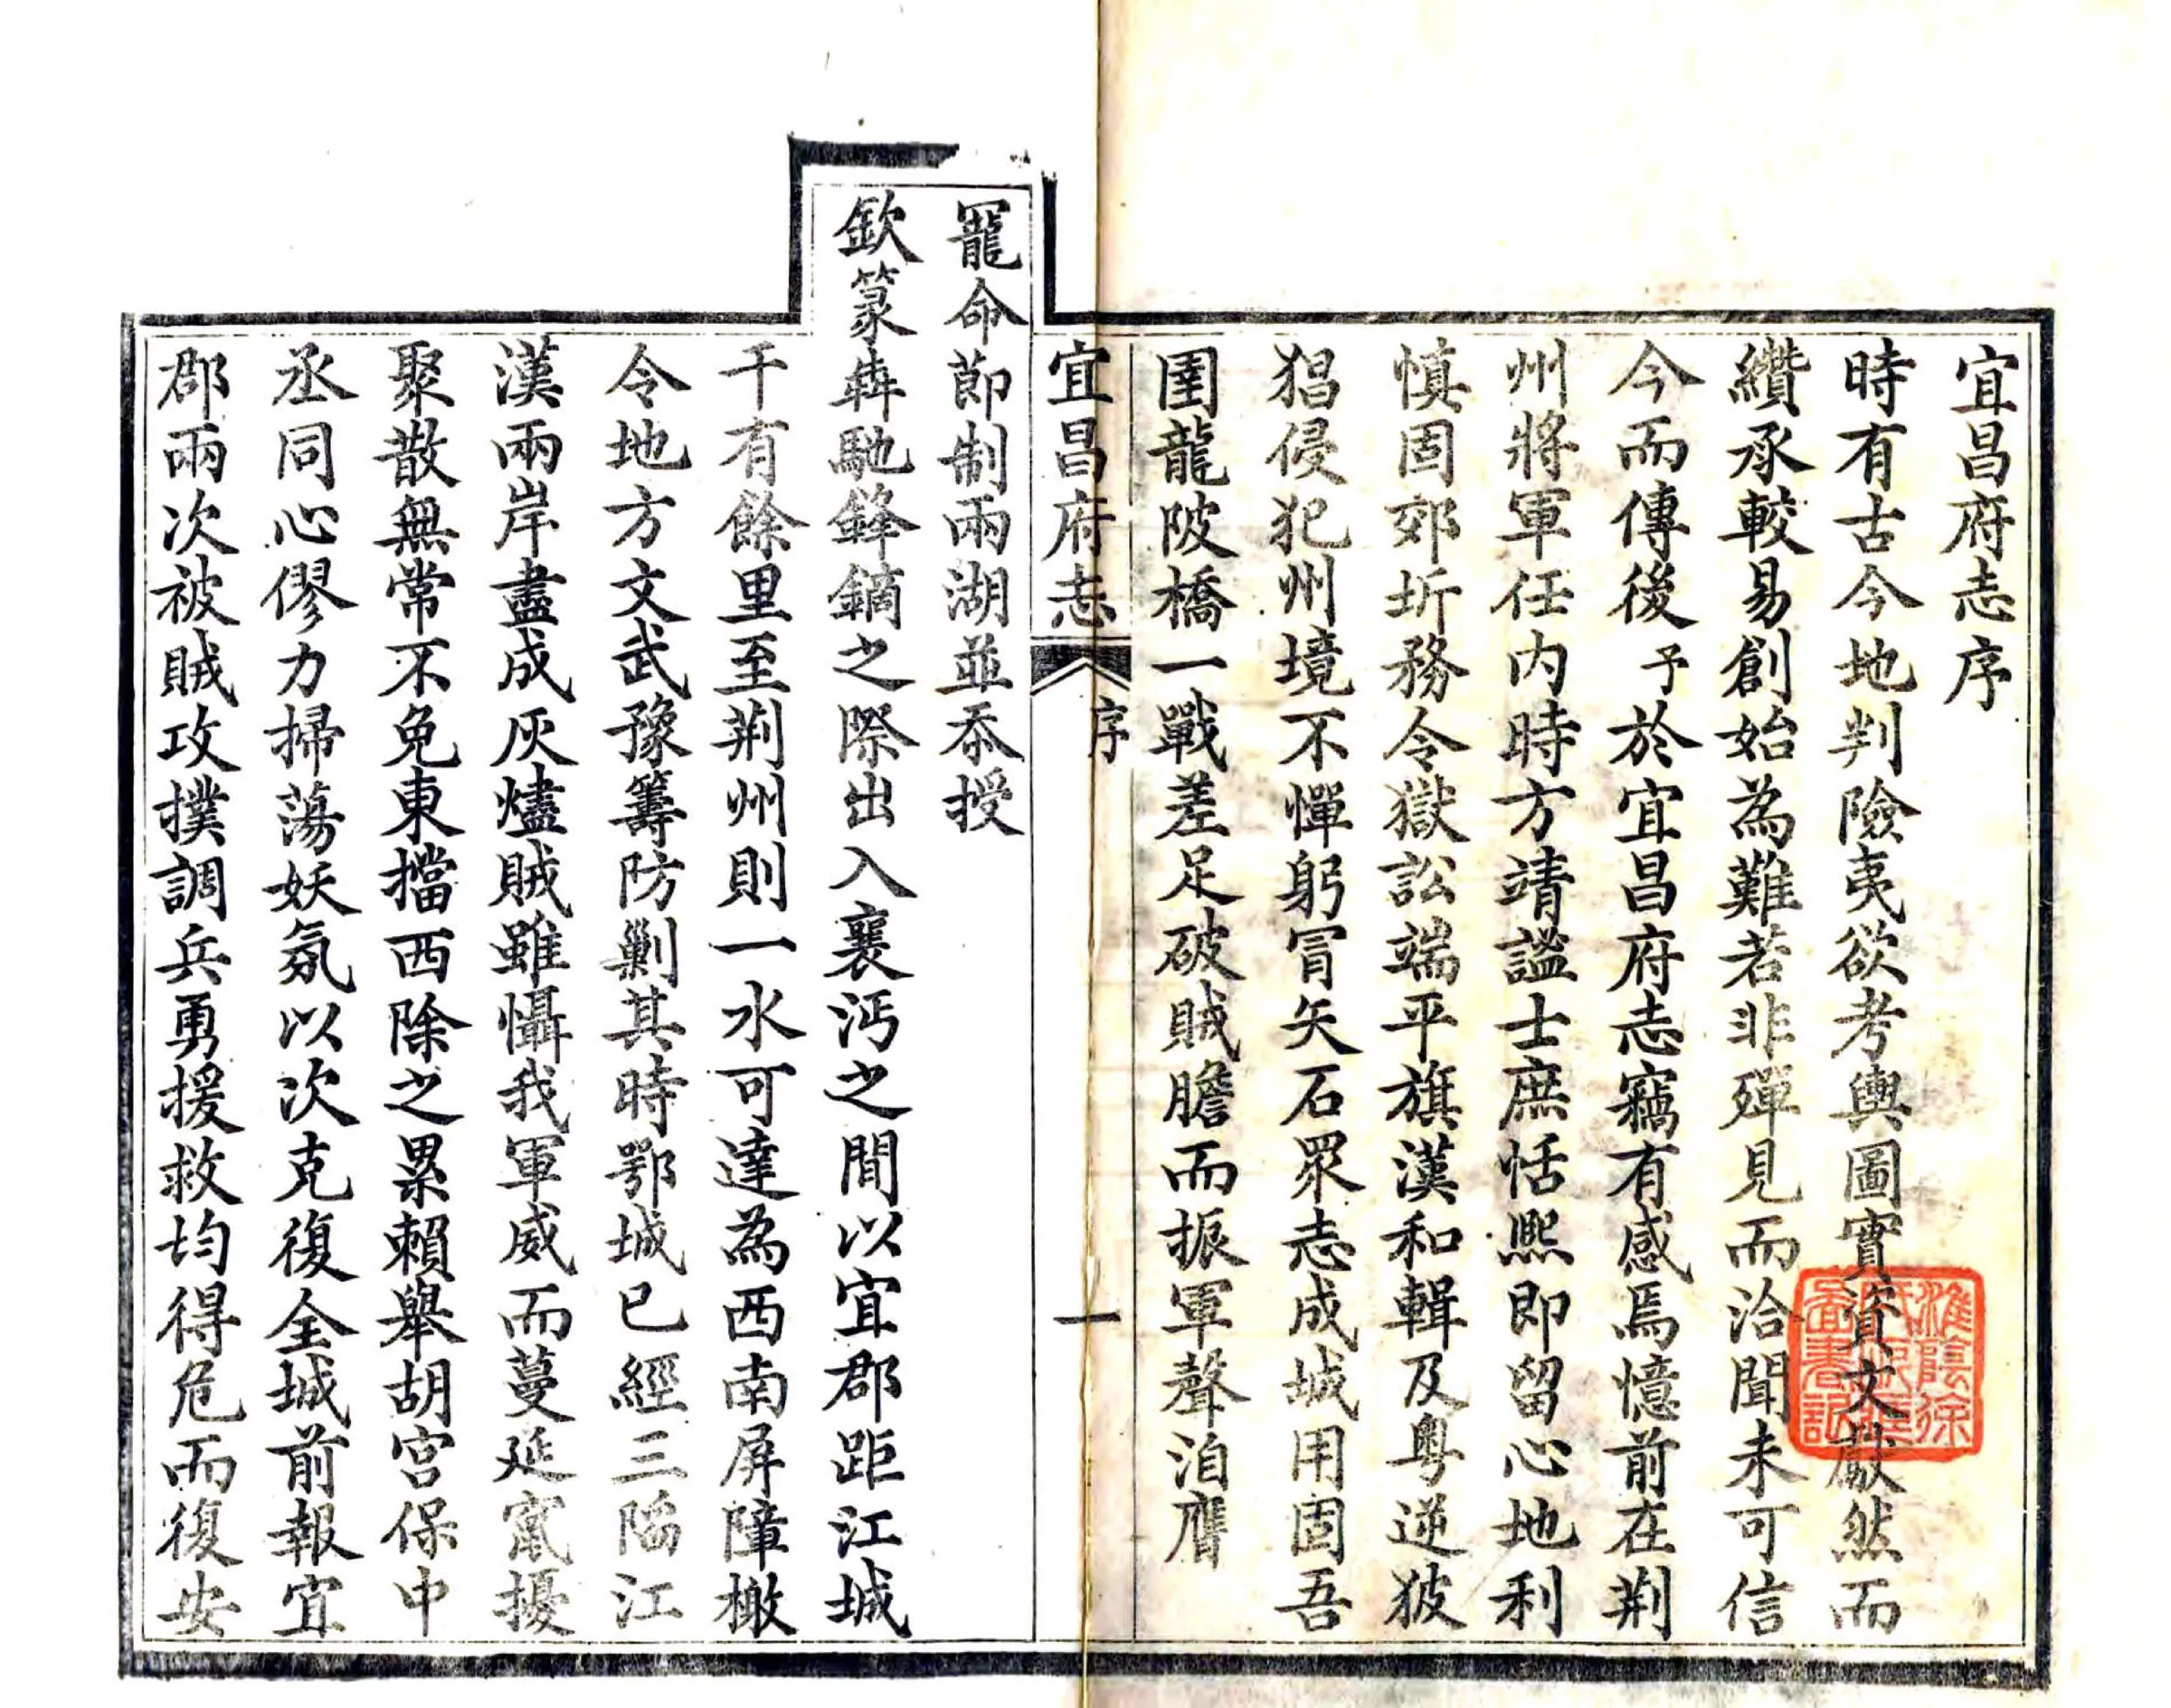 宜昌府志序
時有古今地判險夷欲考輿圖實資文獻然而
纘承較易創始為難若非殫見而洽聞未可信
今而傳後予於宜昌府志竊有感焉憶前在荆
州將軍任内時方靖謐士庶恬熙即留心地利
慎固郊圻務令獄訟端平旗漢和輯及粤逆披
猖侵犯州境不憚躬冒矢石眾志成城用固吾
圉龍陂橋一戰差足破賊膽而振軍聲洎膺
宜昌府志
序
一
寵命節制兩湖並忝授
欽篆犇馳鋒鏑之際出入襄沔之間以宜郡距江城
千有餘里至荆州則一水可達為西南屏障檄
令地方文武豫籌防剿其時鄂城已經三陷江
漢兩岸盡成灰燼賊雖懾我軍威而蔓延竄擾
聚散無常不免東擋西除之累賴舉胡宮保中
丞同心僇力掃蕩妖氛以次克復全城前報宜
郡兩次被賊攻撲調兵勇援救均得危而復安
淮陰徐
圖書記